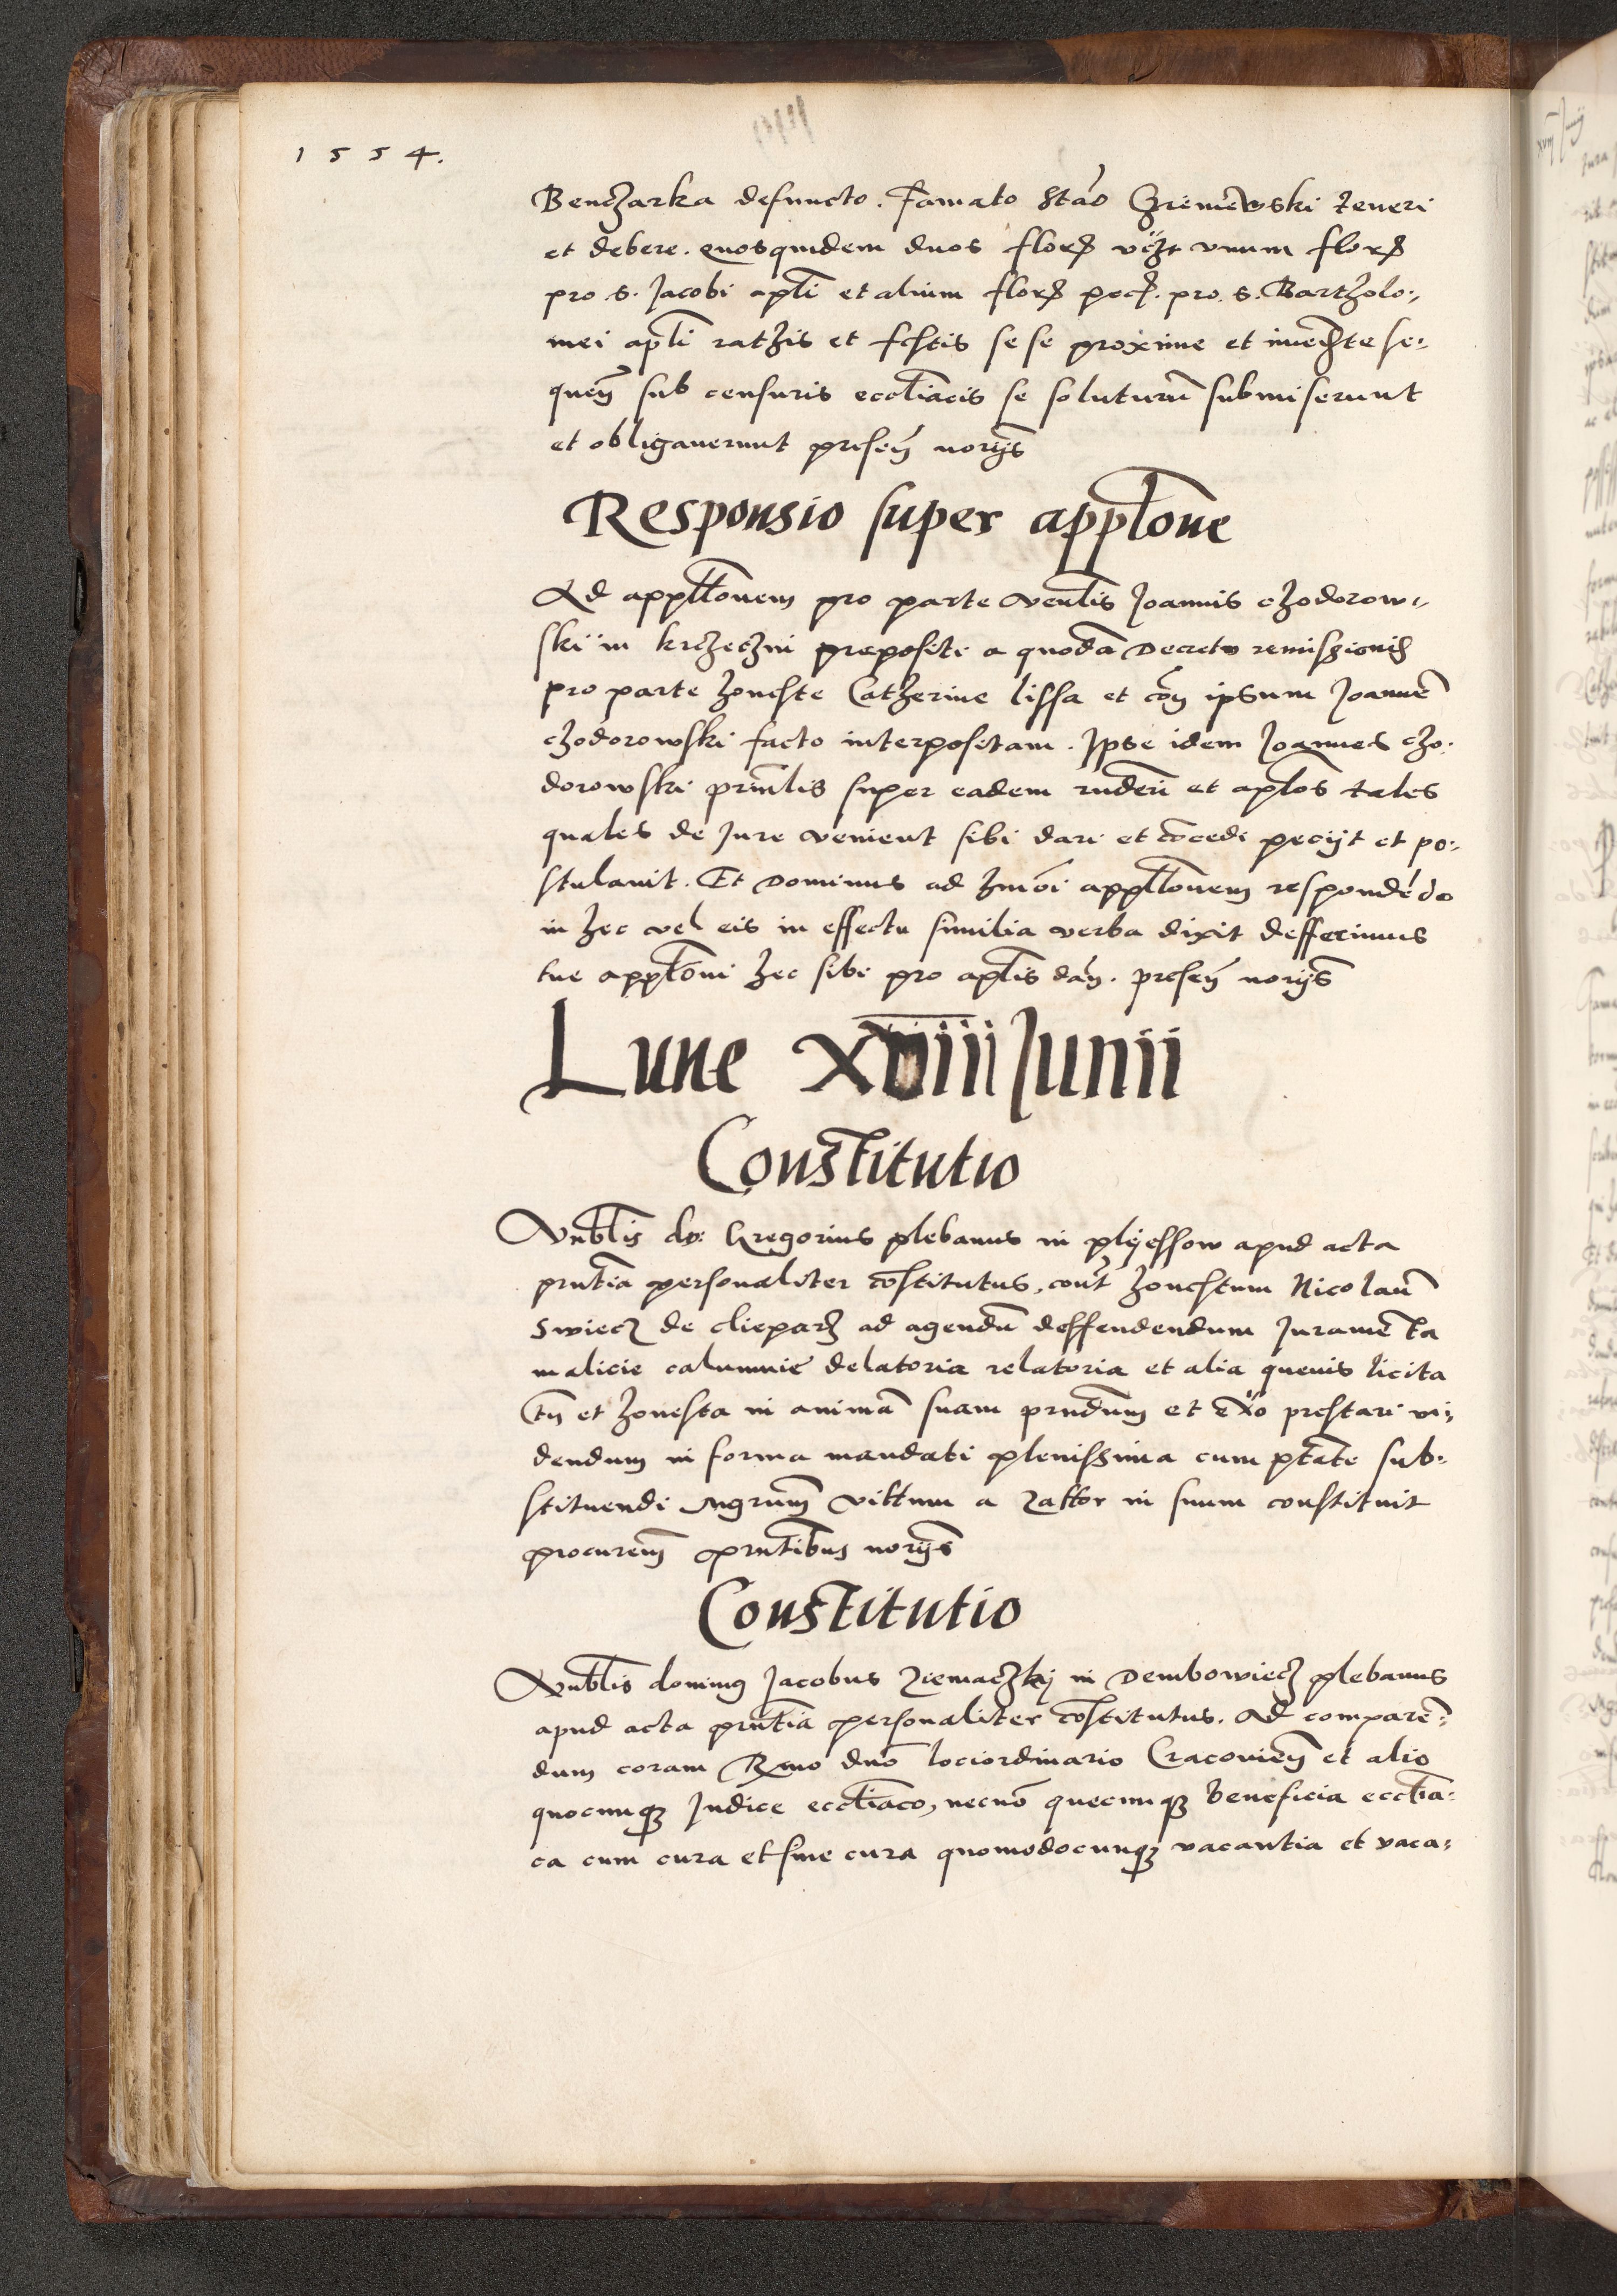 1 5 5 4.
Benczarka defuncto. Famato Stão teneri
et debere. quosquidem duos flor vczt vnum flor
pro s. Jacobi apli et alium flor pec. pro. s. Barthol:
mei apli rathis et festis se se proxime et se:
quen sub censuris eccliacis se soluturũ submiserunt
et obligauerunt presen norijs
Responsio super applone
Ad appellonem pro parte venlis Joannis chodorow:
ski in krzeczni prepositi a quodã Decreto remissionis
pro parte honeste Catherine lissa et con ipsum Joannẽ
chodorowski facto interpositam. Ipse idem Joannes cho:
dorowski prinlis super eadem rñderi et aplos tales
quales de Jure venient sibi dari et cõcedi pecijt et po:
stulauit. Et Dominus ad hmõi appellonem respondẽdo
in hec vel eis in effectu similia verba dixit defferimus
tue applõni hec sibi pro aplis dan. presen norijs
Lune xviiii Junii
Constitutio
Vnblis do: Gregorius plebanus in plyessow apud acta
prñtia personaliter cõstitutus, conr honestum Nicolaũ
Swiecz de clieparz ad agendũ deffendendum Juramẽta
malicie calumnie delatoria relatoria et alia queuis licita
tñ et honesta in animã suam prñdum et ex̃o prestari vi:
dendum in forma mandati plenissima cum ptãte sub:
stituendi mgrum vittum a zattor in suum constituit
procurem prntibus norijs
Constitutio
Vnblis dominus Jacobus Ziemaczkij in Dembowiecz plebanus
apud acta prñtia personaliter cõstitutus. Ad comparẽ:
dum coram Rmo dnõ lociordinario Cracouien et alio
quocunqz Judice eccliaco, necnõ quecunqz beneficia ecclia:
ca cum cura et sine cura quomodocunqz vacantia et vaca: